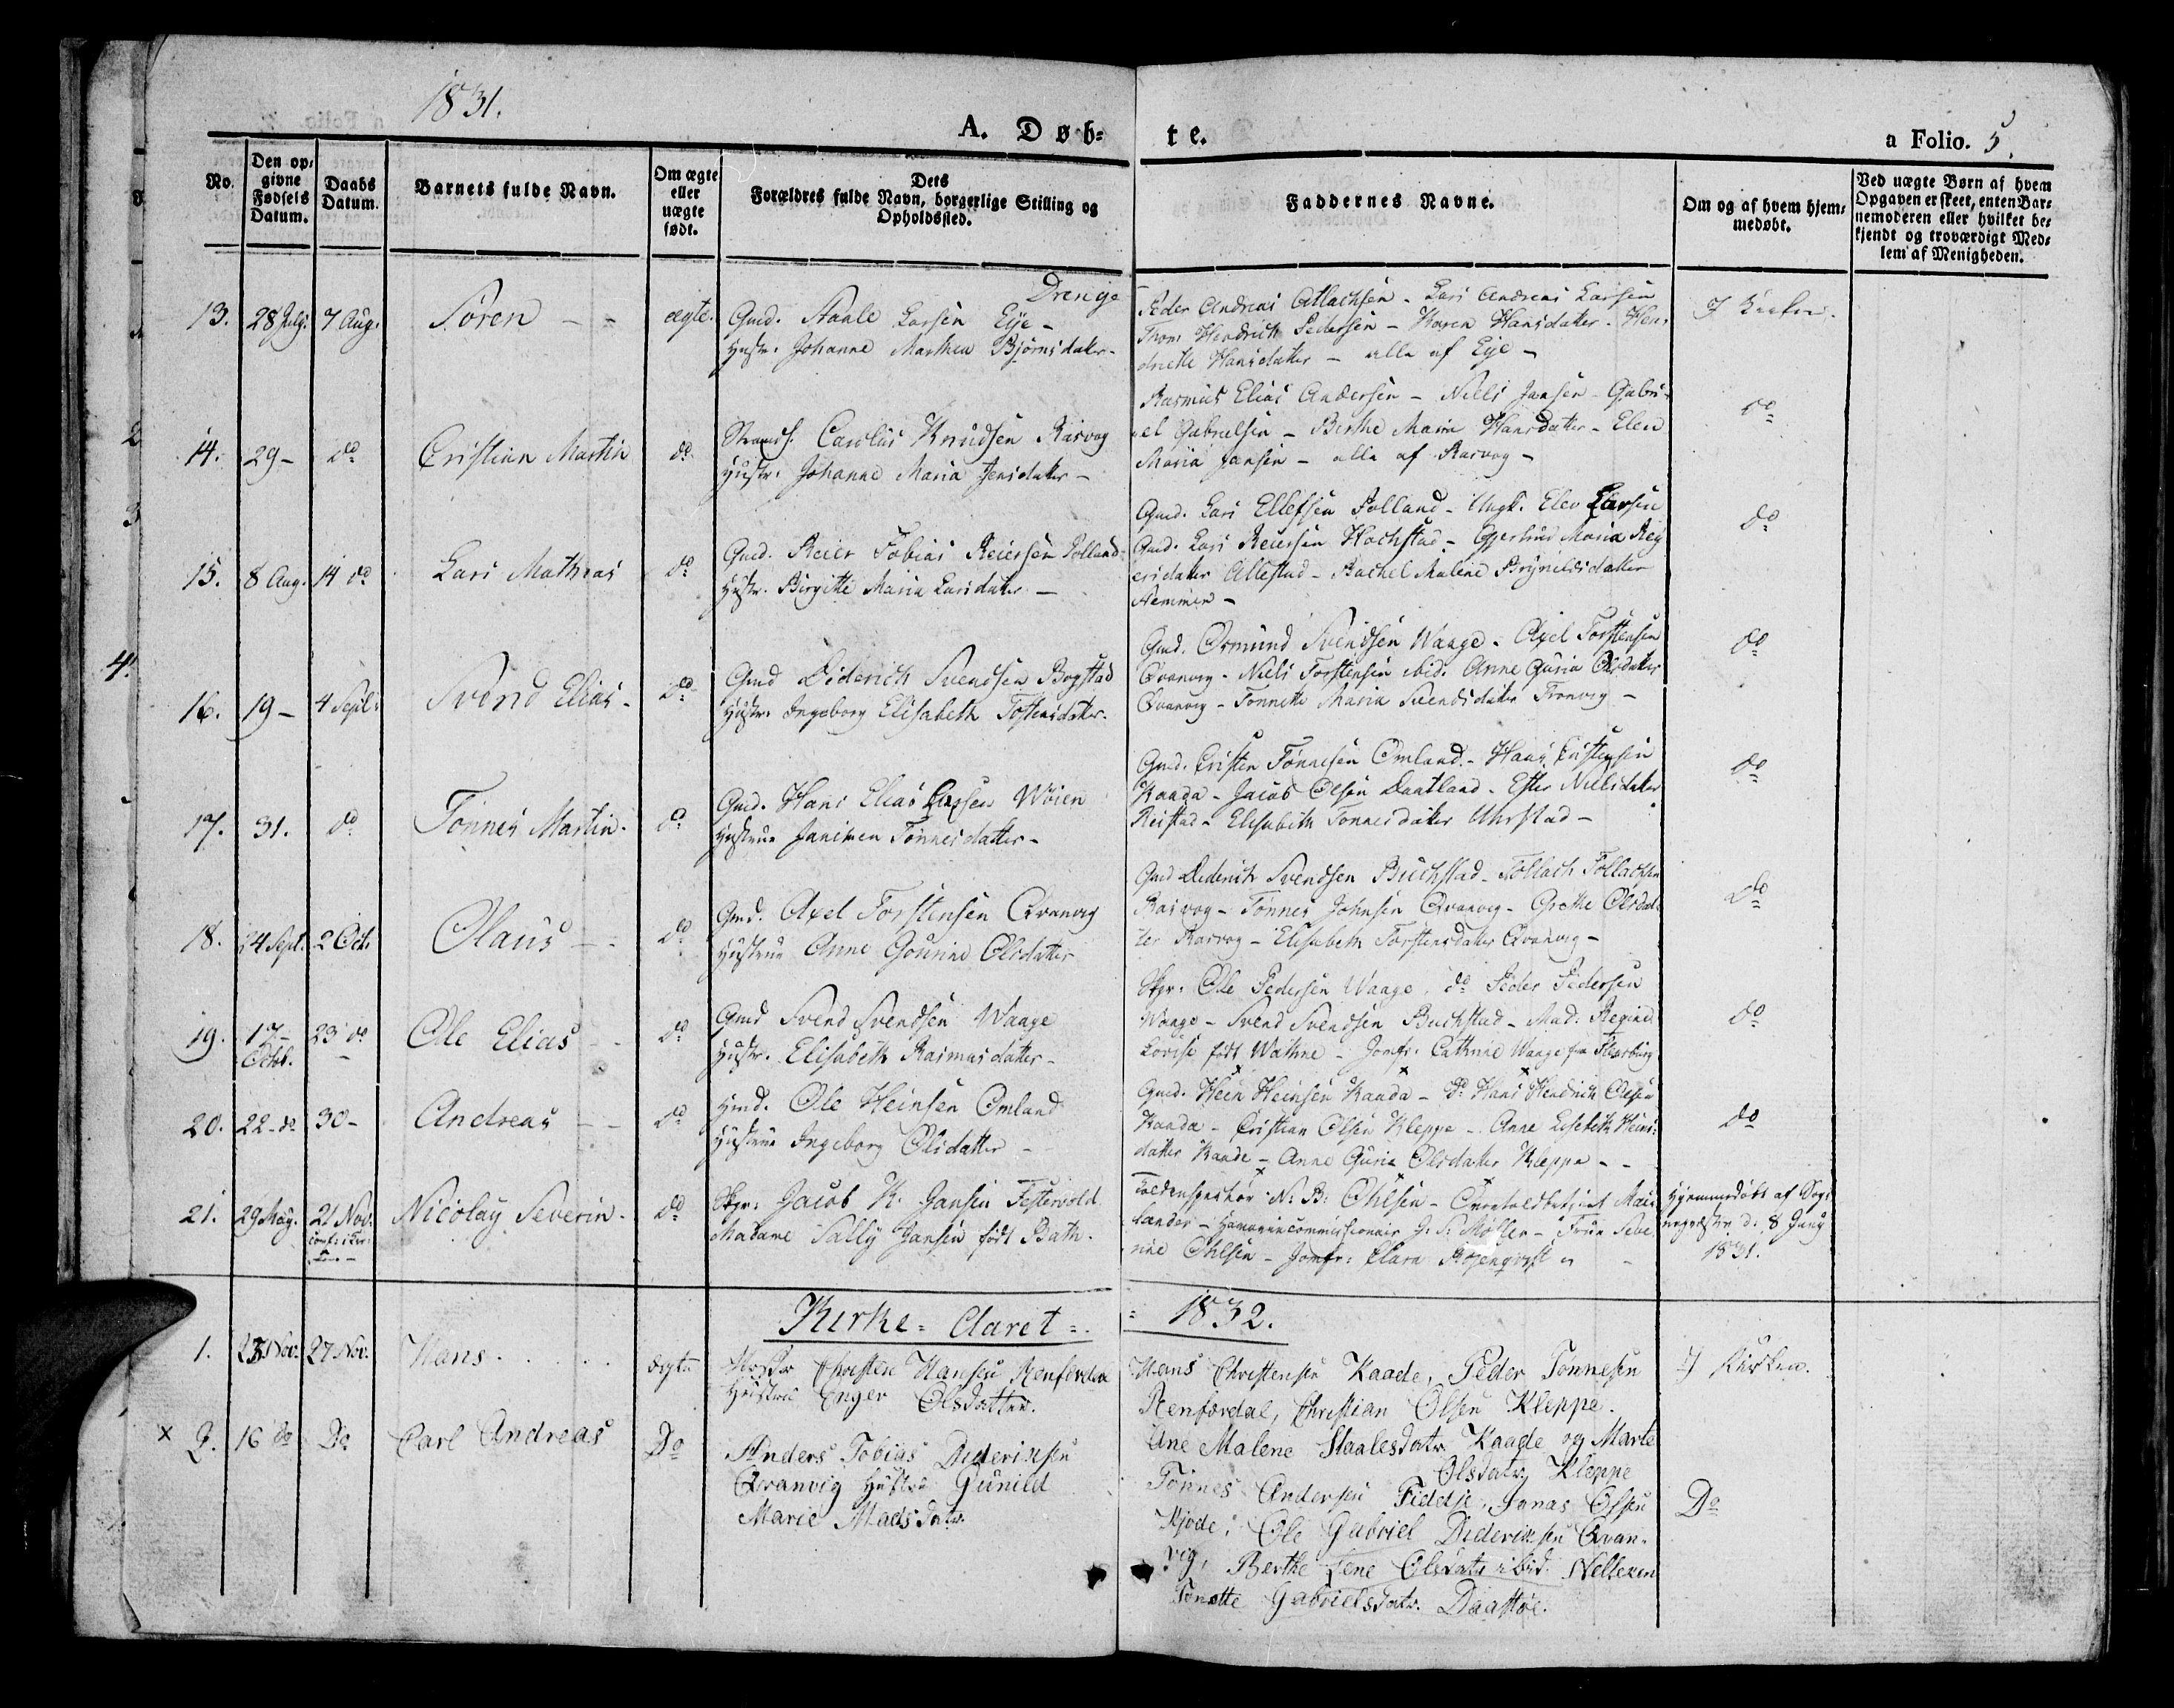 1831.
A. Døb-
te.
a Folio. 5.
No.
Den op-
givne
Fødsels
Datum.
Daabs
Datum.
Barnets fulde Navn.
Om ægte
eller
uægte
født.
Dets
Forældres fulde Navn, borgerlige Stilling og
Opholdssted.
Faddernes Navne.
Om og af hvem hjem-
medøbt.
Ved uægte Børn af hvem
Opgaven er skeet, enten Bar-
nemoderen eller hvilket be-
kjendt og troværdigt Med-
lem af Menigheden.
Drenge
13. 28 July. 7 Aug. Søren - - ægte. Gmd. Staale Larsen Eye -
Hustr. Johanne Marthea Bjørnsdatter.
Peder Andreas Atlachsen - Lars Andreas Larsen
Thom Hendrich Pedersen - Karen Hansdatter. Hen-
driette Hansdatter - alle af Eye -
I Kirken.
14. 29 - do Cristian Martin do Carolus Knudsen Rasvog
Hustr. Johanne Maria Jensdatter -
Rasmus Elias Andersen - Niels Jansen - Gabri-
el Gabrielsen - Birthe Maria Hansdatter - Elen
Maria Jansen - alle af Rasvog -
do
15. 8 Aug. 14 do Lars Mathias do Gmd. Reier Tobias Reiersen Tolland
Hustr. Birgitte Maria Larsdatter -
Gmd. Lars Ellefsen Tolland - Ungk. Elev Larsen
Gmd. Lars Reiersen Hochstad - Gjertrud Maria Rey
ersdatter Allestad - Rachel Malene Brynildsdatter
Nemmen -
do
16. 19 - 4 Sept. Svend Elias - do Gmd Diderich Svendsen Bogstad
Hustr. Ingeborg Elisabeth Tostensdatter.
Gmd. Osmund Svendsen Waage - Axel Torstensen
Qvanvig - Niels Torstensen ibid. Anne Guria Olsdatter
Qvanvig - Tonnette Maria Svendsdatter Tronvig -
do
17. 31. do Tønnes Martin. do Gmd. Hans Elias Larsen Wöien
Hustrue Janiken Tønnesdatter -
Gmd. Cristen Tønnesen Omland - Hans Cristensen
Kaada - Jacob Olsen Dautland - Ester Nielsdatter
Reistad - Elisabeth Tonnesdatter Uhrstad -
do
18. 24 Sept. 2 Oct. Olaus - - do Gmd. Axel Torstensen Qvanvig
Hustrue Anne Gourine Olsdatter
Gmd Diderich Svendsen Buchstad - Tollach Tollachsen
Rasvog - Tønnes Johnsen Qvanvig - Grethe Olsdat-
ter Rasvog - Elisabeth Torstensdatter Qvanvig -
do
19. 17 - Octbl. 23 do Ole Elias - - do Gmd Svend Svendsen Waage
Hustr. Elisabeth Rasmusdatter -
Skpr. Ole Pedersen Waage, do Peder Pedersen
Waage - Svend Svendsen Buchstad - Mad. Regine
Lovise født Wathne - Jomfr. Cathrine Waage fra Flensburg
do
20. 22 - do 30 - Andreas - - do Hmd. Ole Heinsen Omland
Hustrue Ingeborg Olsdatter -
Gmd. Hein Heinsen Kaada - do Hans Hendrich Olsen
Kaada - Cristian Olsen Kleppe - Anne Lisebeth Heins-
datter Kaade - Anne Guria Olsdatter Kleppe - -
do
21. 29 May. 21 Nov. Nicolay Severin - do Skpr. Jacob K. Jansen Festervold
Madame Sally Jansen født Bath.
N: B: Ohlsen -
lander - Havariecommissionair J. S. Møller - Frue Seve
rine Ohlsen - Jomfr: Clara Rosenqvist -
Hjemmedøbt af Sog-
nepræsten d: 8 Juny
1831.
Kirke-Aaret
1832.
1. 23 Nov. 27 Nov. Hans . . . . . ægte Christen Hansen Renfordal
Hustrue Enger Olsdatter.
Hans Christensen Kaade, Peder Tønnesen
Renfordal, Christian Olsen Kleppe.
Ane Malene Staalesdatr Kaade og Marte
Olsdatr. Kleppe
I Kirken.
x 2. 16 do Do Carl Andreas Do Anders Tobias Dideriksen
Qvanvig Hustru Gunild
Marie Madsdatr.
Tønnes Andersen Fiddje, Jonas Olsen
Kjøde, Ole Gabriel Dideriksen Qvan-
vig, Berthe Lene Olsdatr ibid.
Tonette Gabrielsdatr. Daattøe.
Do